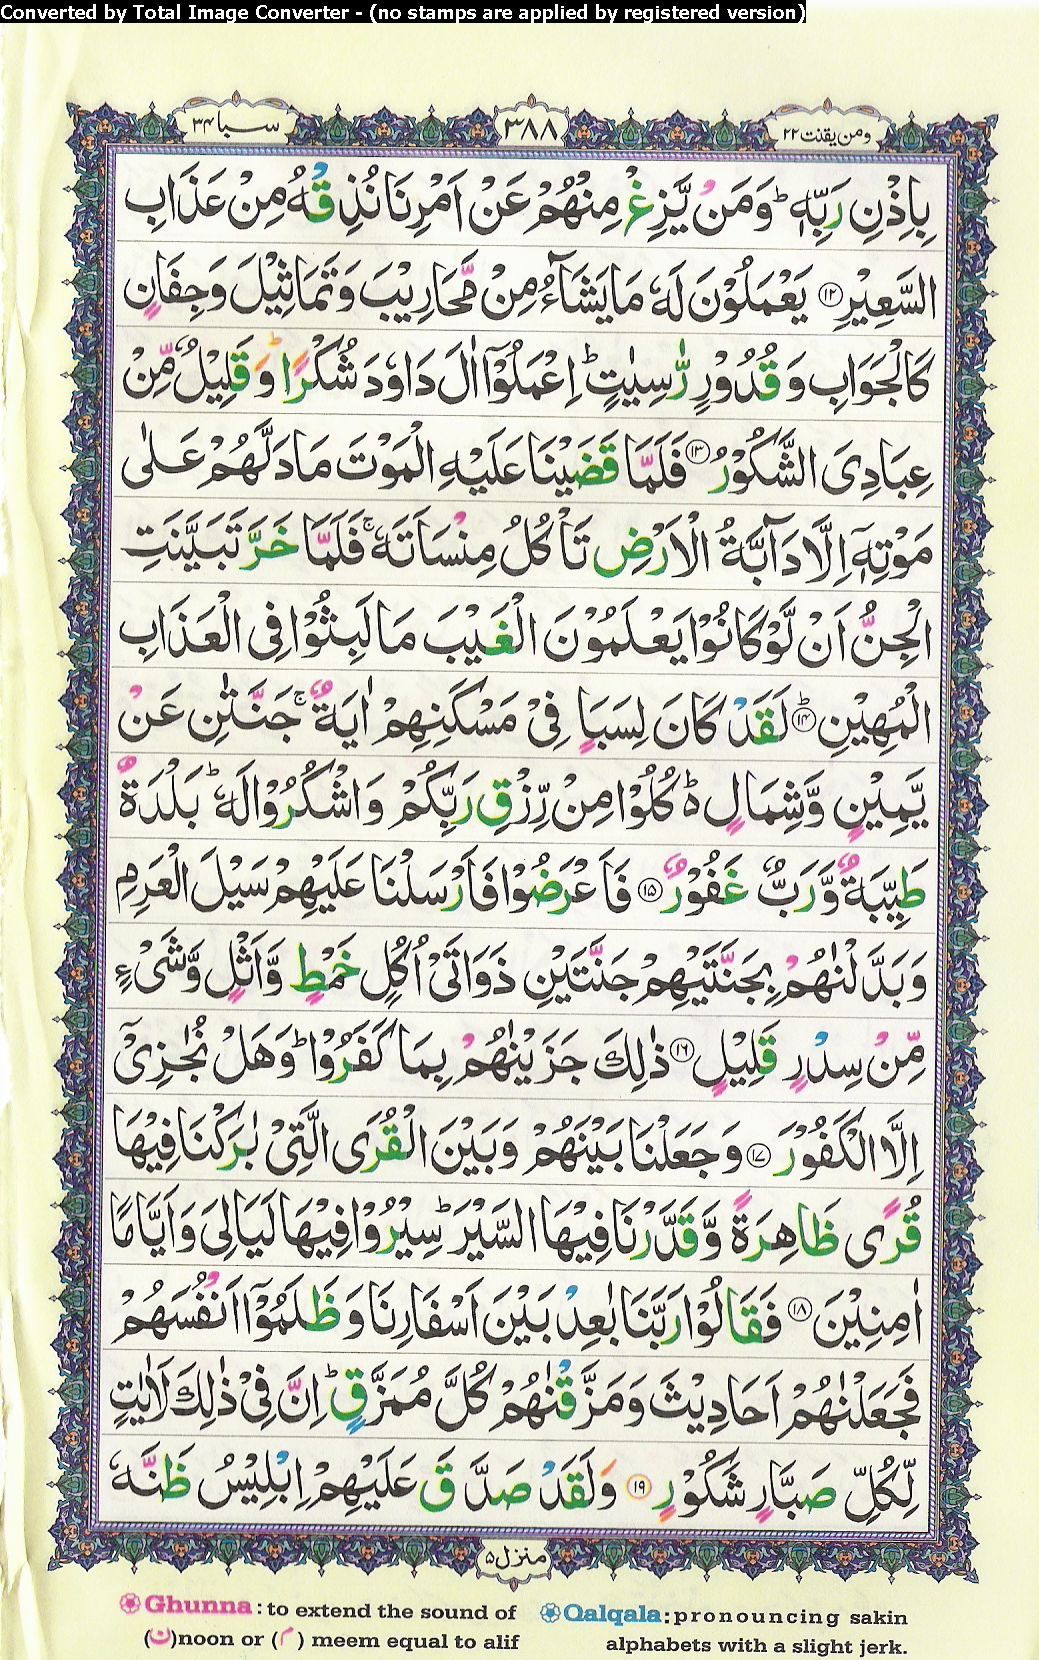 Converted by Total Image Converter - (no stamps are applied by registered version)
سبا ۳۴
۳۸۸
ومن يقنت ۲۲
بِاِذْنِ رَبِّهٖ ؕ وَمَنْ يَّزِغْ مِنْهُمْ عَنْ اَمْرِنَا نُذِقْهُ مِنْ عَذَابِ
السَّعِيْرِ ﴿۱۲﴾ يَعْمَلُوْنَ لَهٗ مَا يَشَآءُ مِنْ مَّحَارِيْبَ وَتَمَاثِيْلَ وَجِفَانٍ
كَالْجَوَابِ وَقُدُوْرٍ رّٰسِيٰتٍ ؕ اِعْمَلُوْۤا اٰلَ دَاوٗدَ شُكْرًا ؕ وَقَلِيْلٌ مِّنْ
عِبَادِىَ الشَّكُوْرُ ﴿۱۳﴾ فَلَمَّا قَضَيْنَا عَلَيْهِ الْمَوْتَ مَا دَلَّهُمْ عَلٰى
مَوْتِهٖۤ اِلَّا دَآبَّةُ الْاَرْضِ تَاْكُلُ مِنْسَاَتَهٗ ۚ فَلَمَّا خَرَّ تَبَيَّنَتِ
الْجِنُّ اَنْ لَّوْ كَانُوْا يَعْلَمُوْنَ الْغَيْبَ مَا لَبِثُوْا فِى الْعَذَابِ
الْمُهِيْنِ ﴿۱۴﴾ؕ لَقَدْ كَانَ لِسَبَاٍ فِىْ مَسْكَنِهِمْ اٰيَةٌ ۚ جَنَّتٰنِ عَنْ
يَّمِيْنٍ وَّشِمَالٍ ؕ۬ كُلُوْا مِنْ رِّزْقِ رَبِّكُمْ وَاشْكُرُوْا لَهٗ ؕ بَلْدَةٌ
طَيِّبَةٌ وَّرَبٌّ غَفُوْرٌ ﴿۱۵﴾ فَاَعْرَضُوْا فَاَرْسَلْنَا عَلَيْهِمْ سَيْلَ الْعَرِمِ
وَبَدَّلْنٰهُمْ بِجَنَّتَيْهِمْ جَنَّتَيْنِ ذَوَاتَىْ اُكُلٍ خَمْطٍ وَّاَثْلٍ وَّشَىْءٍ
مِّنْ سِدْرٍ قَلِيْلٍ ﴿۱۶﴾ ذٰلِكَ جَزَيْنٰهُمْ بِمَا كَفَرُوْا ؕ وَهَلْ نُجٰزِىْۤ
اِلَّا الْكَفُوْرَ ﴿۱۷﴾ وَجَعَلْنَا بَيْنَهُمْ وَبَيْنَ الْقُرَى الَّتِىْ بٰرَكْنَا فِيْهَا
قُرًى ظَاهِرَةً وَّقَدَّرْنَا فِيْهَا السَّيْرَ ؕ سِيْرُوْا فِيْهَا لَيَالِىَ وَاَيَّامًا
اٰمِنِيْنَ ﴿۱۸﴾ فَقَالُوْا رَبَّنَا بٰعِدْ بَيْنَ اَسْفَارِنَا وَظَلَمُوْۤا اَنْفُسَهُمْ
فَجَعَلْنٰهُمْ اَحَادِيْثَ وَمَزَّقْنٰهُمْ كُلَّ مُمَزَّقٍ ؕ اِنَّ فِىْ ذٰلِكَ لَاٰيٰتٍ
لِّكُلِّ صَبَّارٍ شَكُوْرٍ ﴿۱۹﴾ وَلَقَدْ صَدَّقَ عَلَيْهِمْ اِبْلِيْسُ ظَنَّهٗ
منزل ۵
Ghunna : to extend the sound of (ن)noon or (م) meem equal to alif
Qalqala: pronouncing sakin alphabets with a slight jerk.